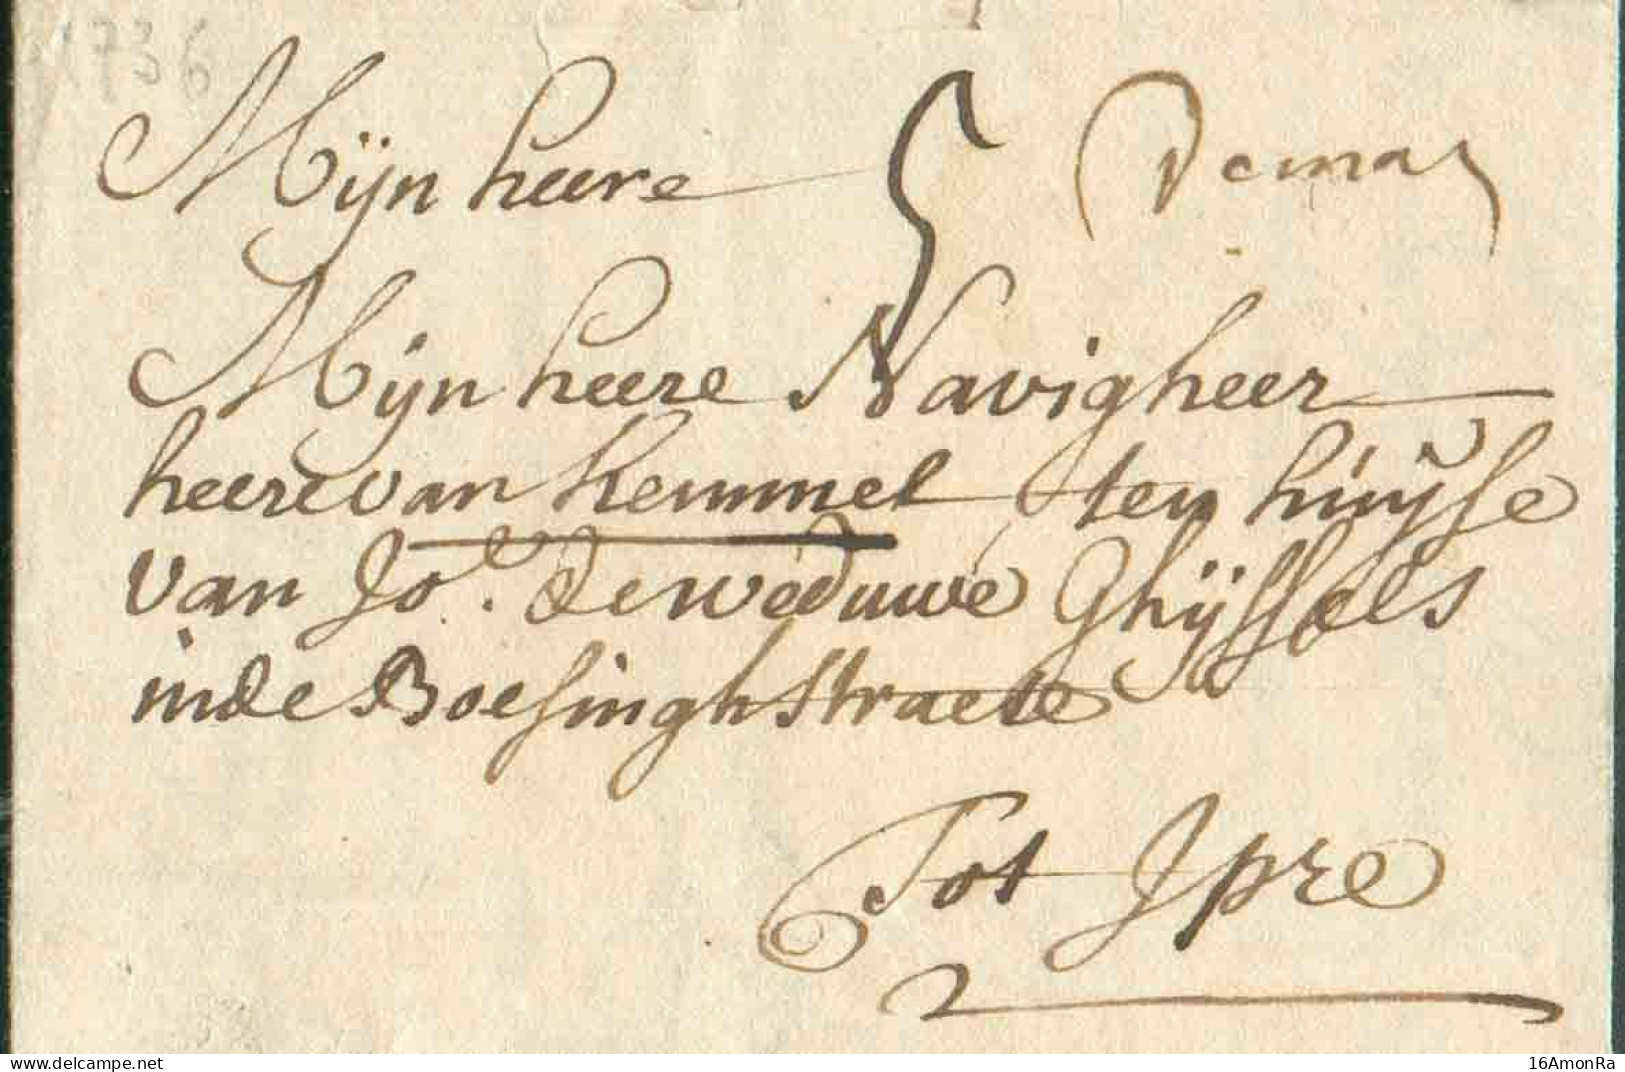 1736
Mijn heere 5 Demas
Mijn heere Navigheer
heere van Kemmel ten huijse
van Jo.e de weduwe Ghijssels
in de Boesinghstraete
Tot Jpre
delcampe.net
16AmonRa